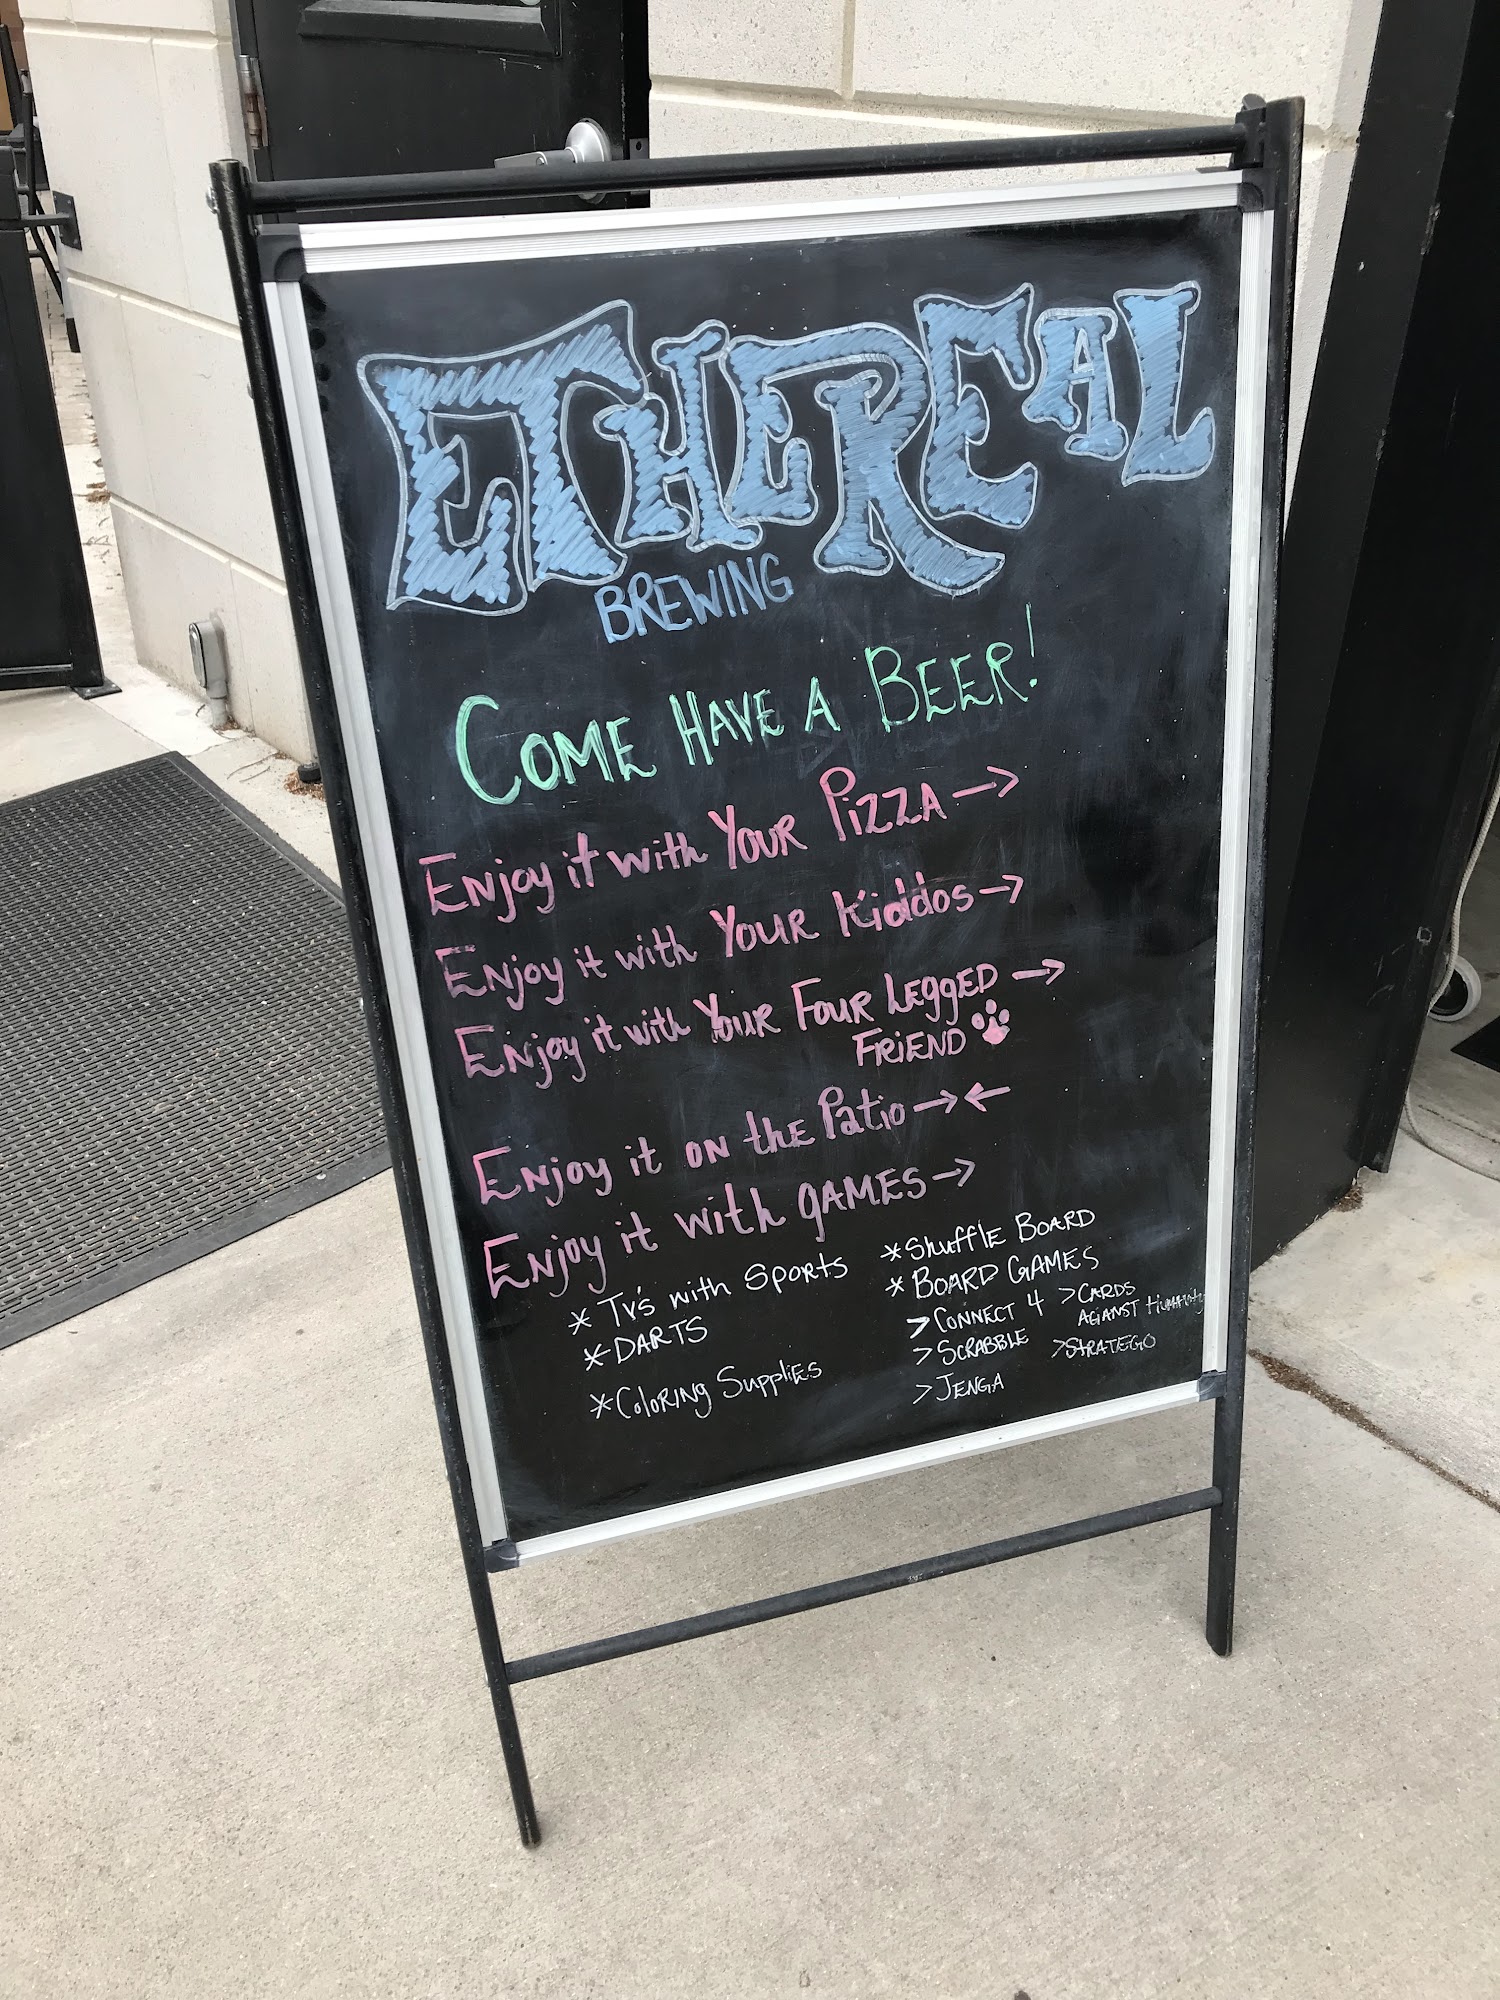 ETHEREAL
BREWING
COME HAVE A BEER!
Enjoy it with YOUR PIZZA →
Enjoy it with YOUR Kiddos →
Enjoy it with YOUR FOUR LEggED →
FRiEND
Enjoy it on the Patio → ←
Enjoy it with gAMES →
* TV's with SPORTS
* DARTS
* ColoRiNg SuppliES
* Shuffle BOARD
* BOARD GAMES
> CONNECT 4 > CARDS
AGAINST HUMANITY
> SCRABBLE > STRATEGO
> JENGA